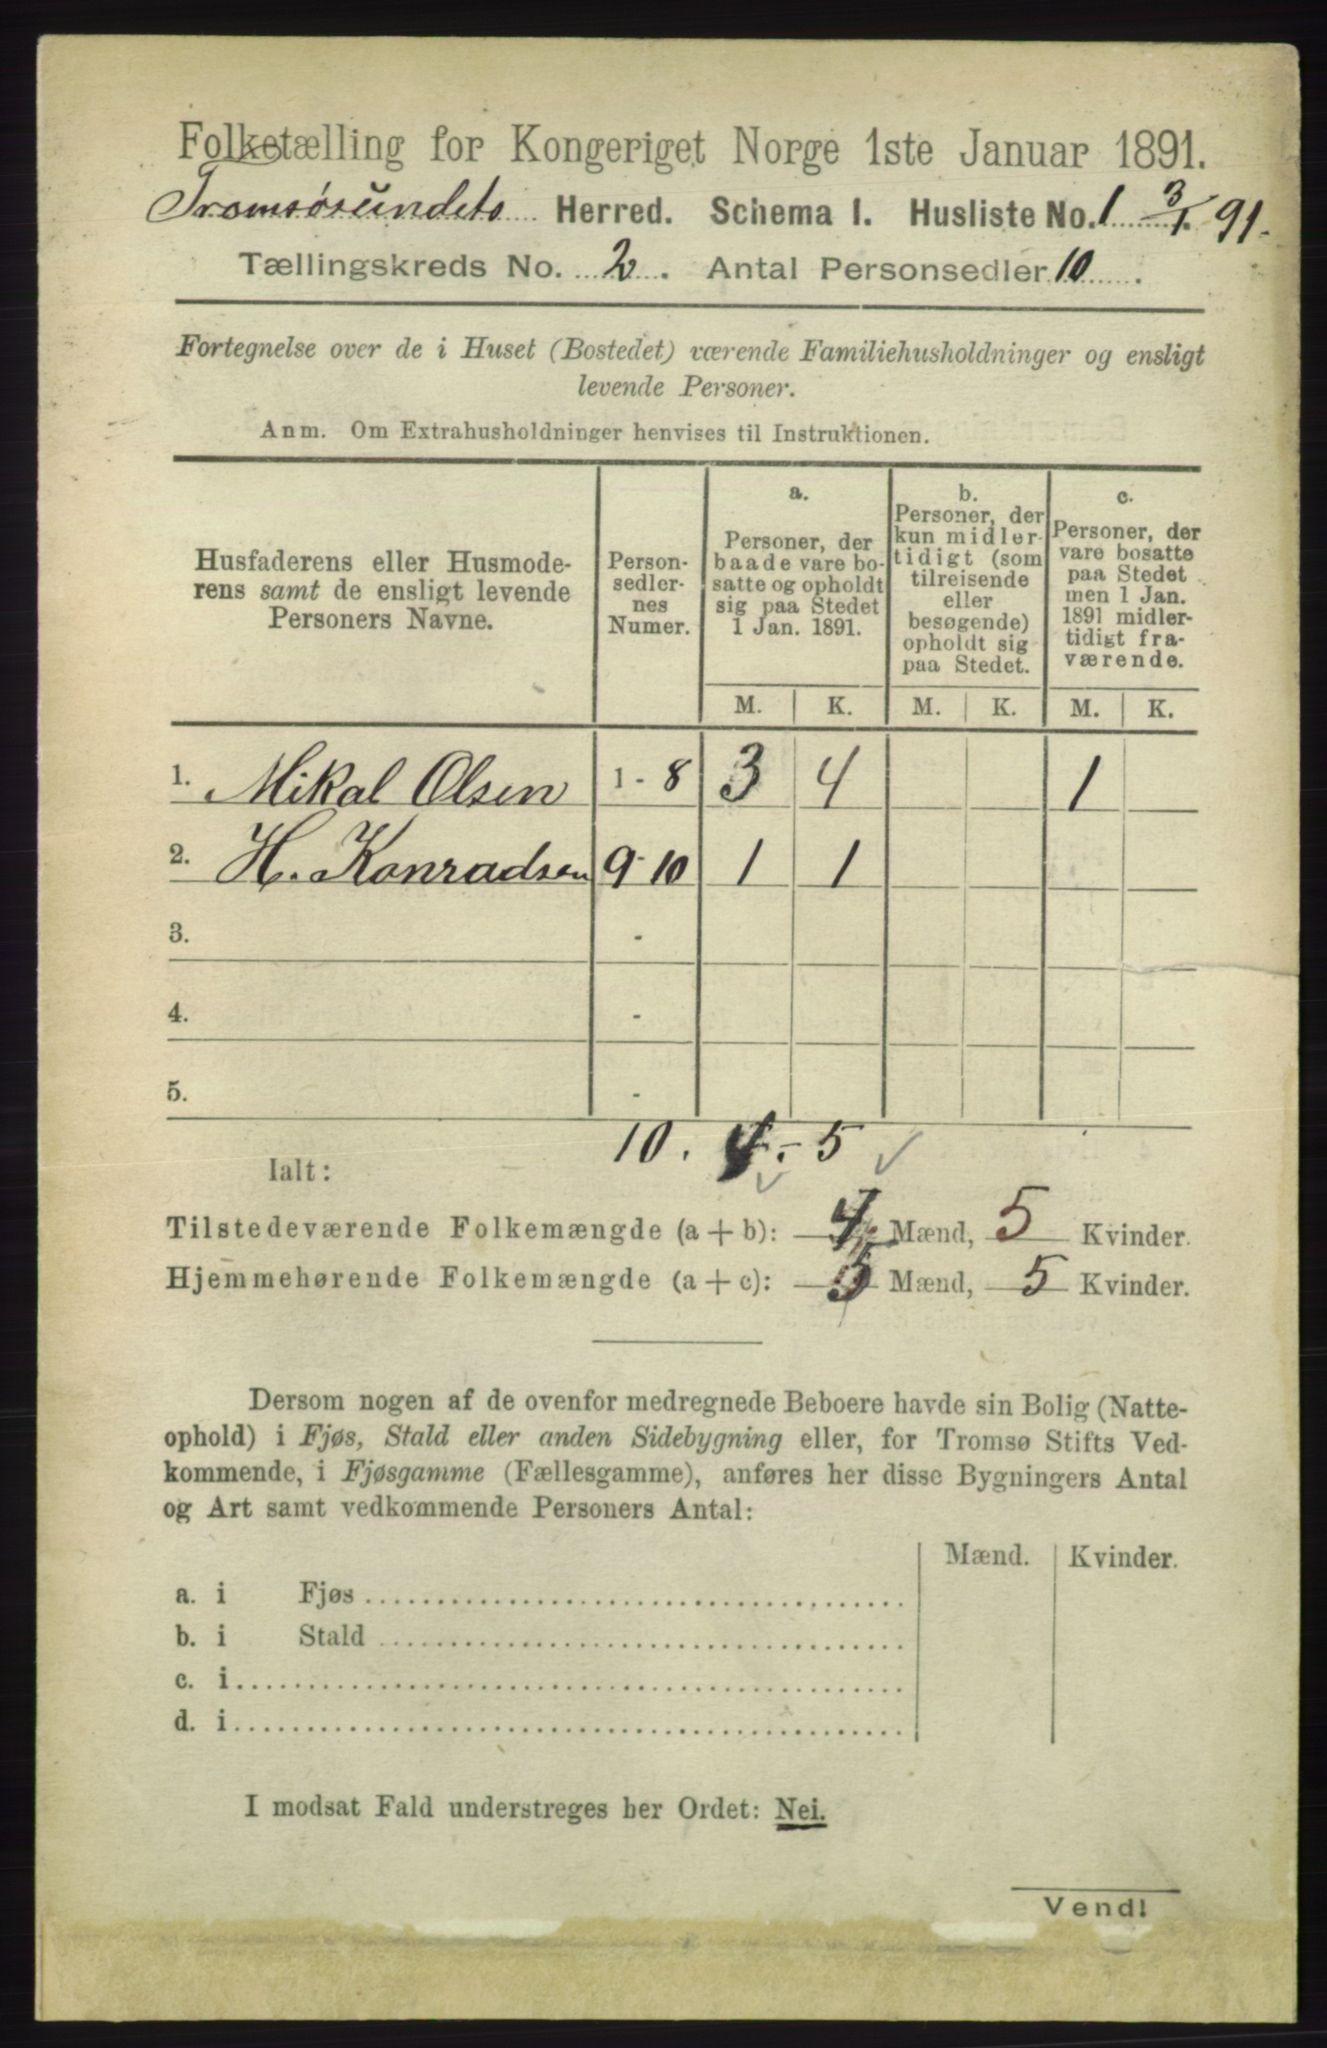 Folketælling for Kongeriget Norge 1ste Januar 1891.
Tromsøsundets Herred. Schema I. Husliste No. 1 3/1 91.
Tællingskreds No. 2. Antal Personsedler 10.
Fortegnelse over de i Huset (Bostedet) værende Familiehusholdninger og ensligt
levende Personer.
Anm. Om Extrahusholdninger henvises til Instruktionen.
Husfaderens eller Husmode-
rens samt de ensligt levende
Personers Navne.
Person-
sedler-
nes
Numer.
a.
Personer, der
baade vare bo-
satte og opholdt
sig paa Stedet
1 Jan. 1891.
b.
Personer, der
kun midler-
tidigt (som
tilreisende
eller
besøgende)
opholdt sig
paa Stedet.
c.
Personer, der
vare bosatte
paa Stedet
men 1 Jan.
1891 midler-
tidigt fra-
værende.
M. K. M. K. M. K.
1. Mikal Olsen 1-8 3 4 1
2. H. Konradsen 9-10 1 1
3. -
4. -
5. -
10. 4.- 5
Ialt:
Tilstedeværende Folkemængde (a + b): 4 Mænd, 5 Kvinder.
Hjemmehørende Folkemængde (a + c): 5 Mænd, 5 Kvinder.
Dersom nogen af de ovenfor medregnede Beboere havde sin Bolig (Natte-
ophold) i Fjøs, Stald eller anden Sidebygning eller, for Tromsø Stifts Ved-
kommende, i Fjøsgamme (Fællesgamme), anføres her disse Bygningers Antal
og Art samt vedkommende Personers Antal:
Mænd. Kvinder.
a. i Fjøs
b. i Stald
c. i
d. i
I modsat Fald understreges her Ordet: Nei.
Vend!